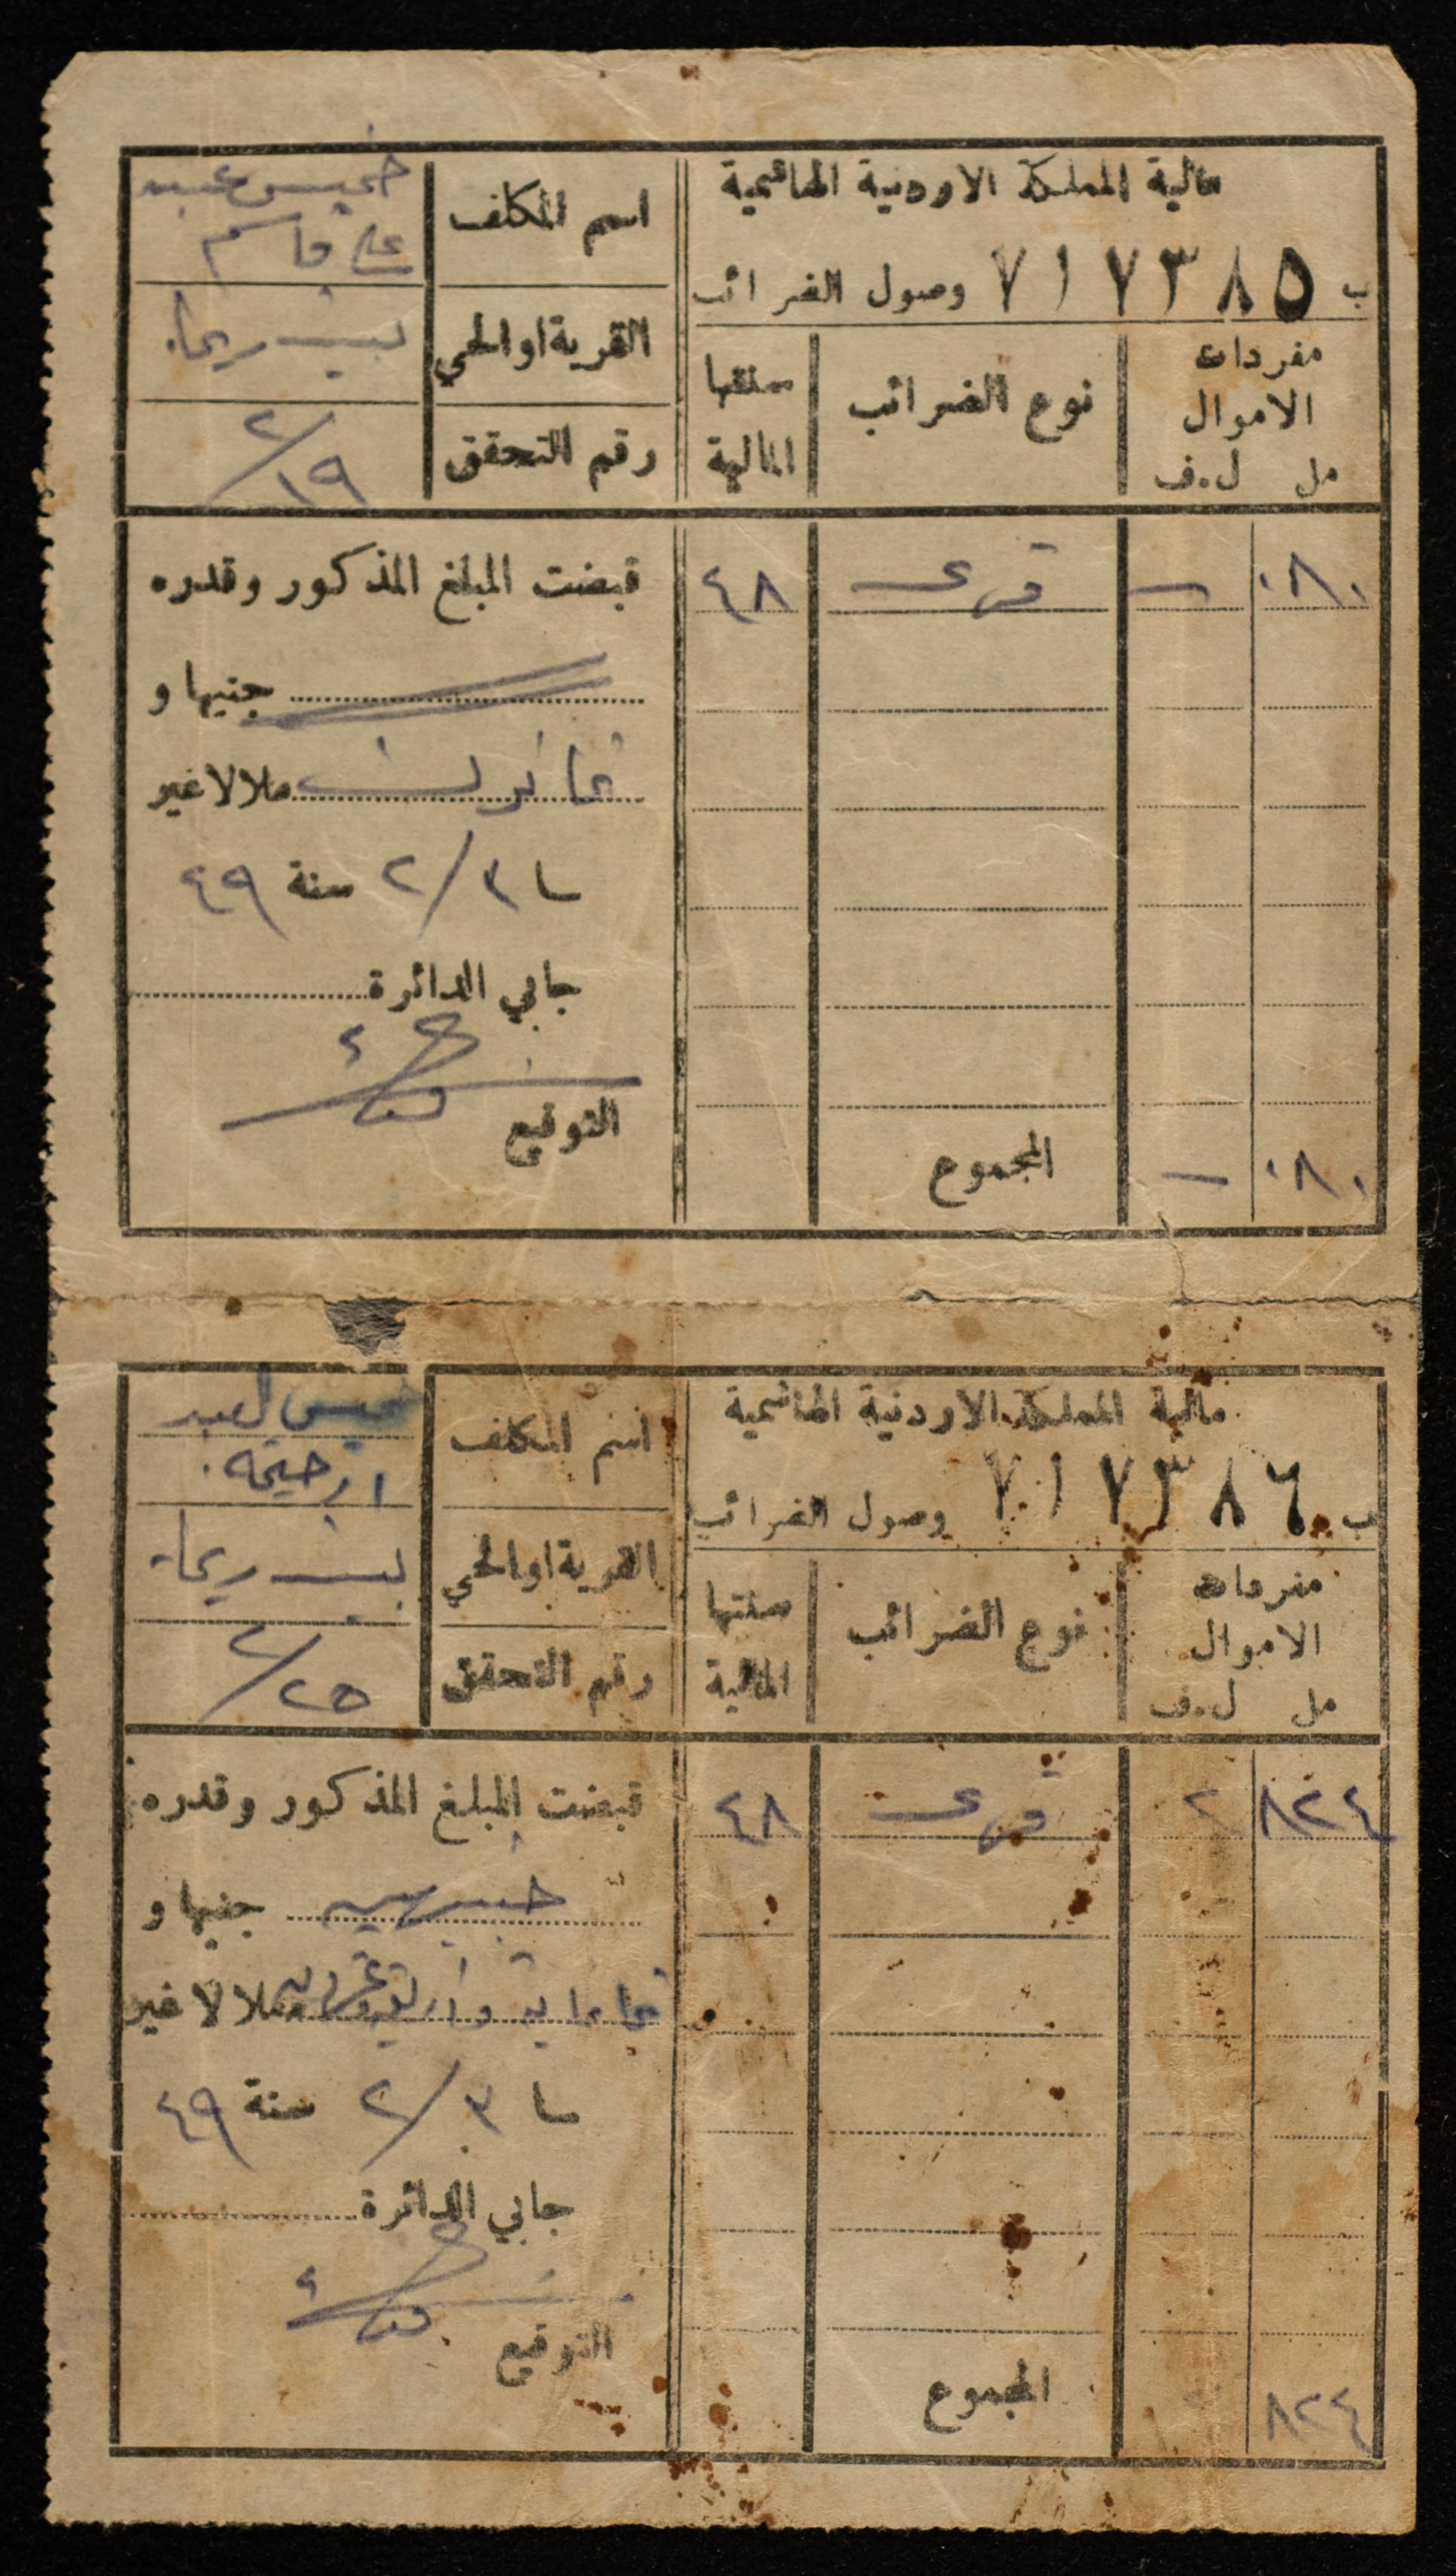 مالية المملكة الاردنية الهاشمية
ب ٧١٧٣٨٥ وصول الضرائب
مفردات الاموال
مل ل.ف
نوع الضرائب
سنتها المالية
اسم المكلف
خميس عبد
علي قاسم
القرية او الحي
بيت ريما
رقم التحقق
٢/١٩
٠٨٠ — قرى ٤٨
قبضت المبلغ المذكور وقدره
جنيها و
ثمانون ملا لا غير
٢/٣ سنة ٤٩
جابي الدائرة
التوقيع
المجموع
٠٨٠ —
مالية المملكة الاردنية الهاشمية
ب ٧١٧٣٨٦ وصول الضرائب
مفردات الاموال
مل ل.ف
نوع الضرائب
سنتها المالية
اسم المكلف
خميس العبد
القرية او الحي
بيت ريما
رقم التحقق
٢/٢٥
٨٢٤ ٢ قرى ٤٨
قبضت المبلغ المذكور وقدره
جنيهين جنيها و
ثمانماية واربعة وعشرين ملا لا غير
٢/٣ سنة ٤٩
جابي الدائرة
التوقيع
المجموع
٨٢٤ ٢